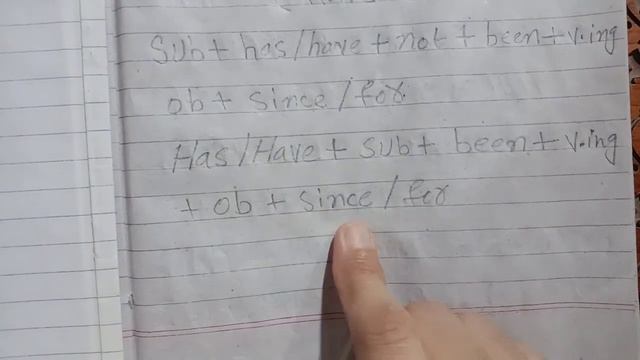 Sub + has/have + not + been + v.ing
ob + since/for
Has/Have + sub + been + v.ing
+ ob + since/for